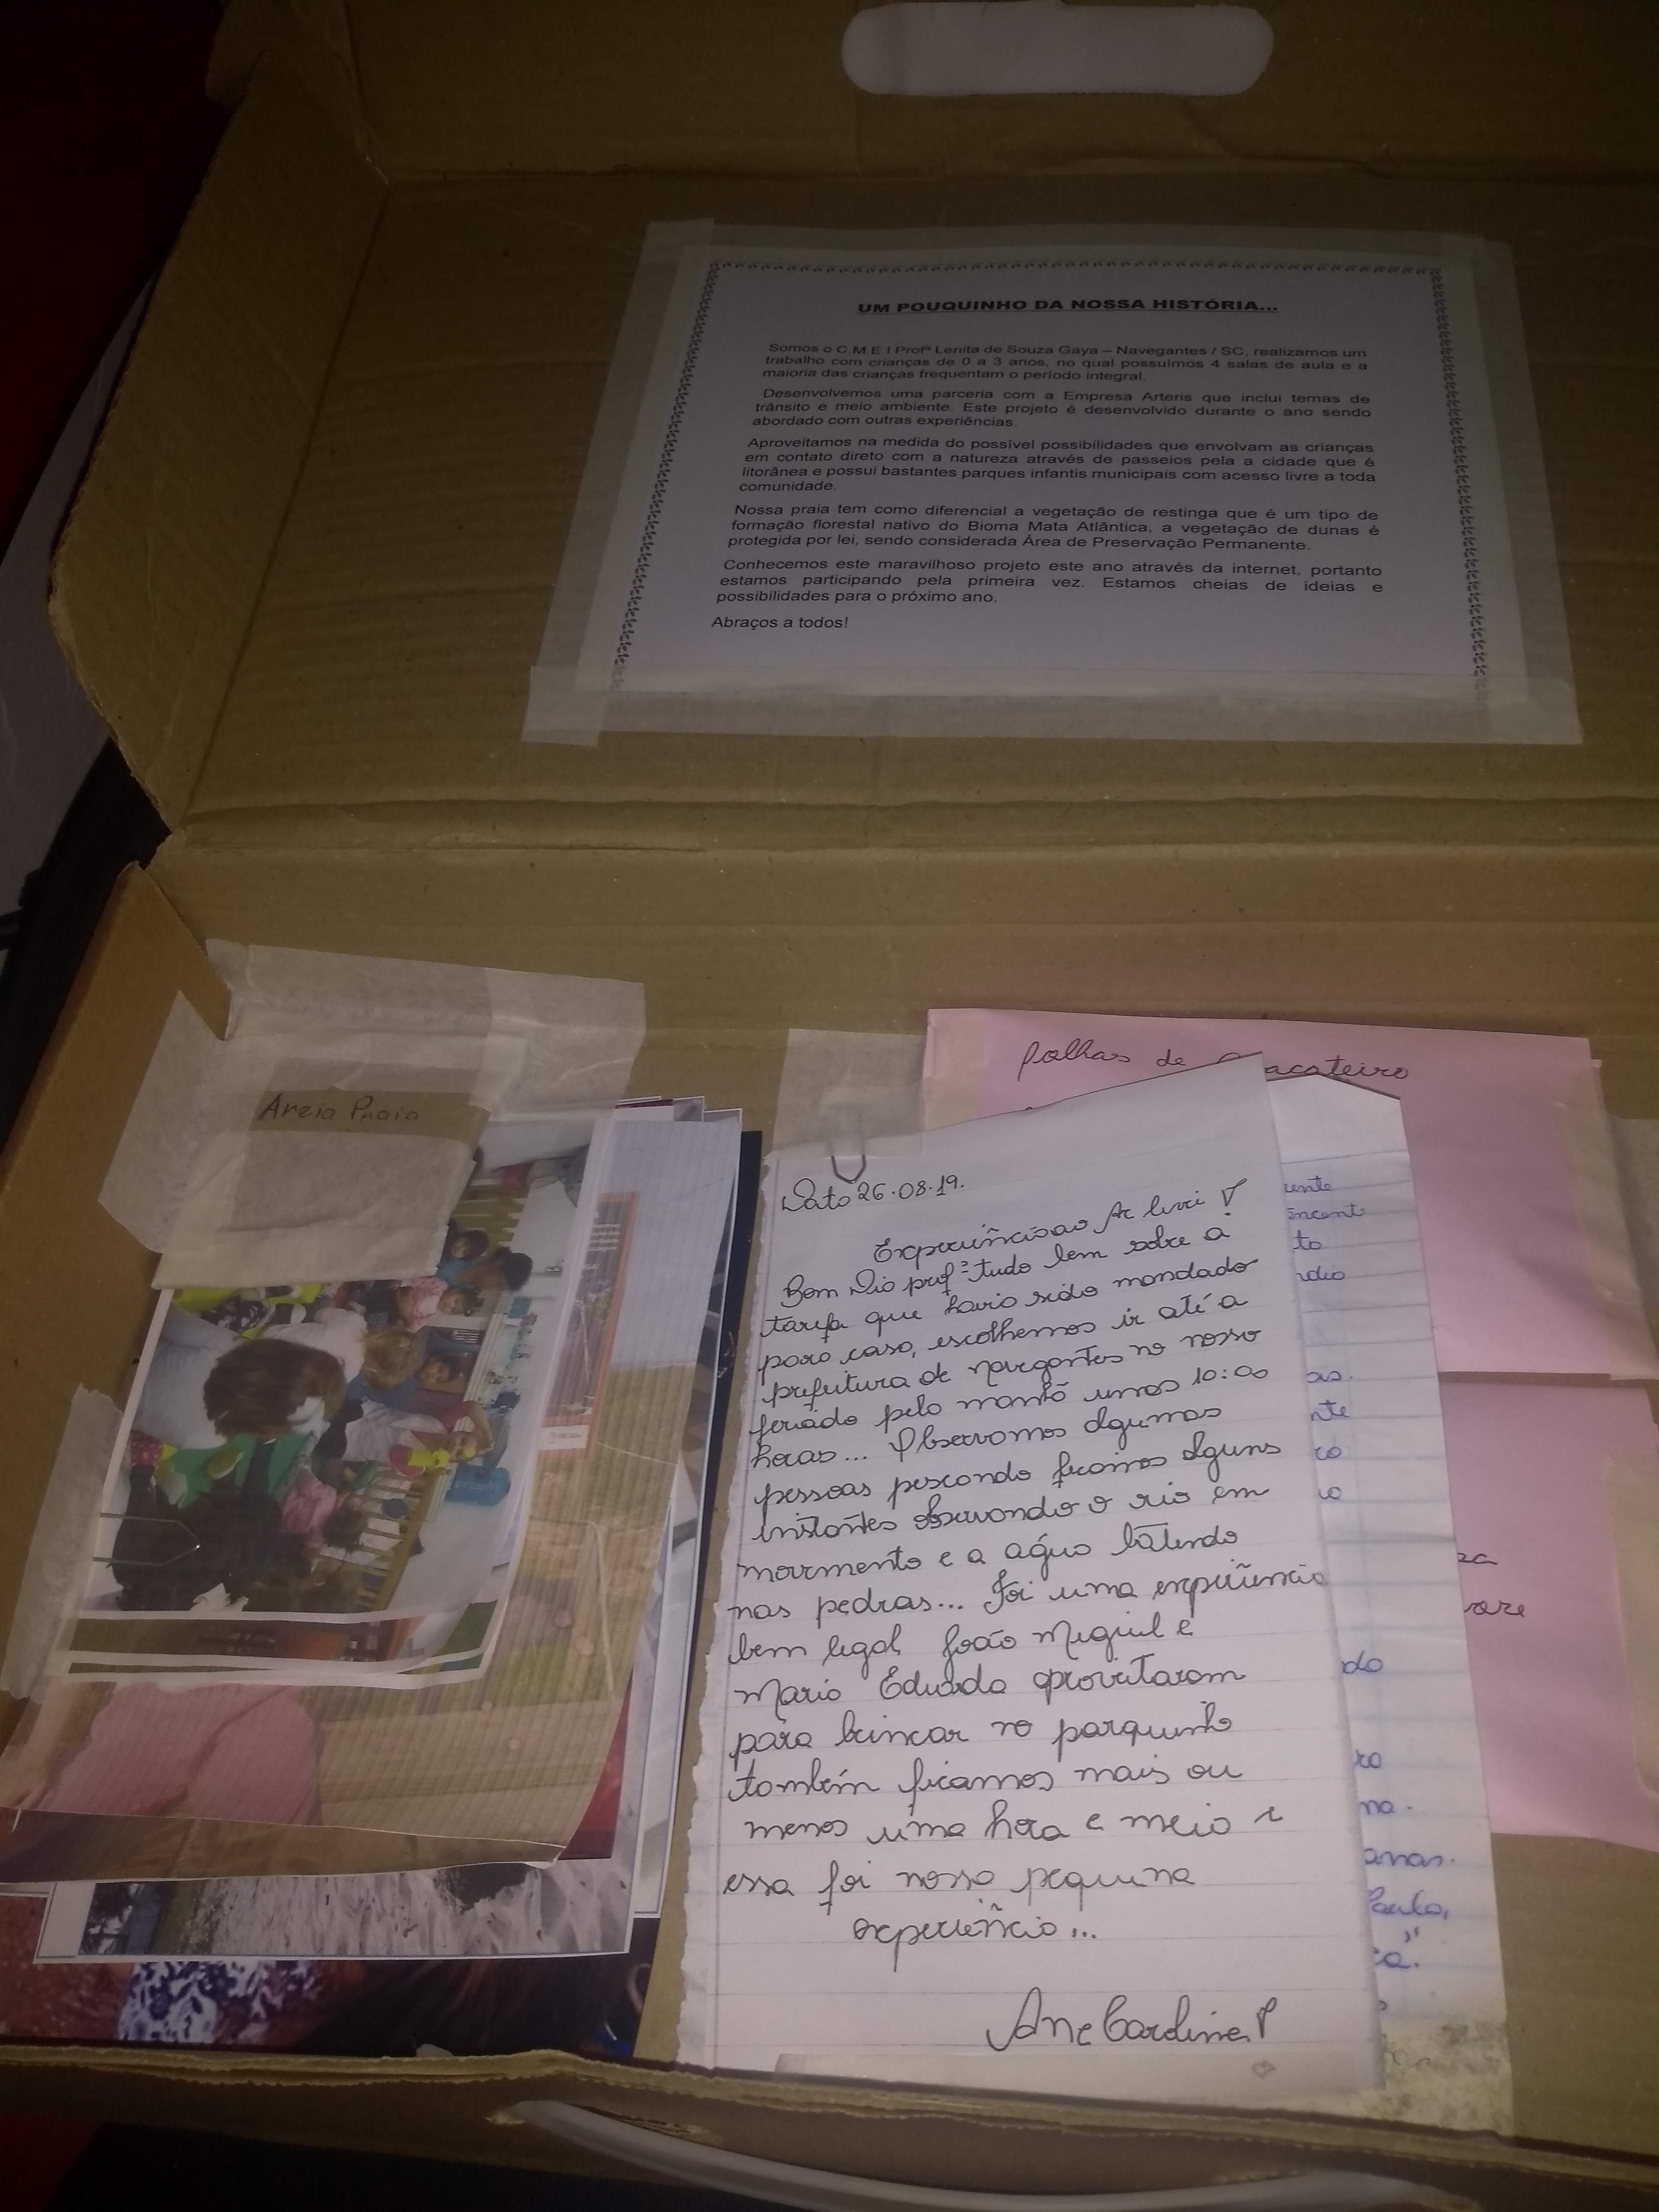 UM POUQUINHO DA NOSSA HISTÓRIA...
Somos o C.M.E.I Profª Lenita de Souza Gaya – Navegantes / SC, realizamos um
trabalho com crianças de 0 a 3 anos, no qual possuímos 4 salas de aula e a
maioria das crianças frequentam o período integral.
Desenvolvemos uma parceria com a Empresa Arteris que inclui temas de
trânsito e meio ambiente. Este projeto é desenvolvido durante o ano sendo
abordado com outras experiências.
Aproveitamos na medida do possível possibilidades que envolvam as crianças
em contato direto com a natureza através de passeios pela a cidade que é
litorânea e possui bastantes parques infantis municipais com acesso livre a toda
comunidade.
Nossa praia tem como diferencial a vegetação de restinga que é um tipo de
formação florestal nativo do Bioma Mata Atlântica, a vegetação de dunas é
protegida por lei, sendo considerada Área de Preservação Permanente.
Conhecemos este maravilhoso projeto este ano através da internet, portanto
estamos participando pela primeira vez. Estamos cheias de ideias e
possibilidades para o próximo ano.
Abraços a todos!
Areia Praia
folhas de
Data 26.08.19.
Experiência ao Ar livre
Bom Dia profª tudo bem sobre a
tarefa que havia sido mandado
para casa, escolhemos ir até a
prefeitura de navegantes no nosso
feriado pela manhã umas 10:00
horas... Observamos algumas
pessoas pescando ficamos alguns
instantes observando o rio em
movimento e a água batendo
nas pedras... Foi uma experiência
bem legal João Miguel e
Maria Eduarda aproveitaram
para brincar no parquinho
também ficamos mais ou
menos uma hora e meia e
essa foi nossa pequena
experiência...
Ane Caroline
ente
to
as.
nte
ro
do
ro
na.
anas.
Paulo,